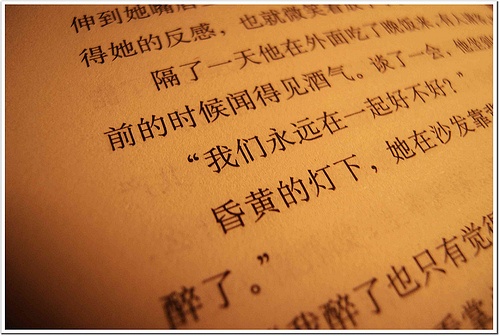 伸到她嘴
得她的反感，也就微笑着
隔了一天他在外面吃了晚饭来，有人
前的时候闻得见酒气。谈了一会，他
“我们永远在一起好不好？”
昏黄的灯下，她在沙发靠
醉了。”
我醉了也只有觉得